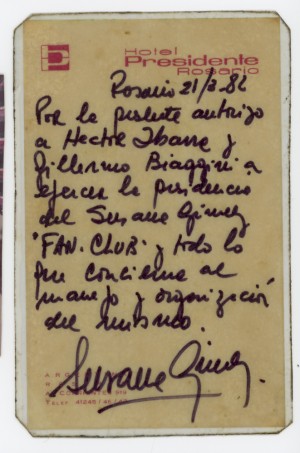 Hotel
Presidente
Rosario
Rosario 21/3.82
Por la presente autorizo
a Hector Ibarra y
Guillermo Biaggini a
ejercer la presidencia
del Susana Giménez
"FAN.CLUB" y todo lo
que concierne al
manejo y organización
del mismo.
Susana Giménez.